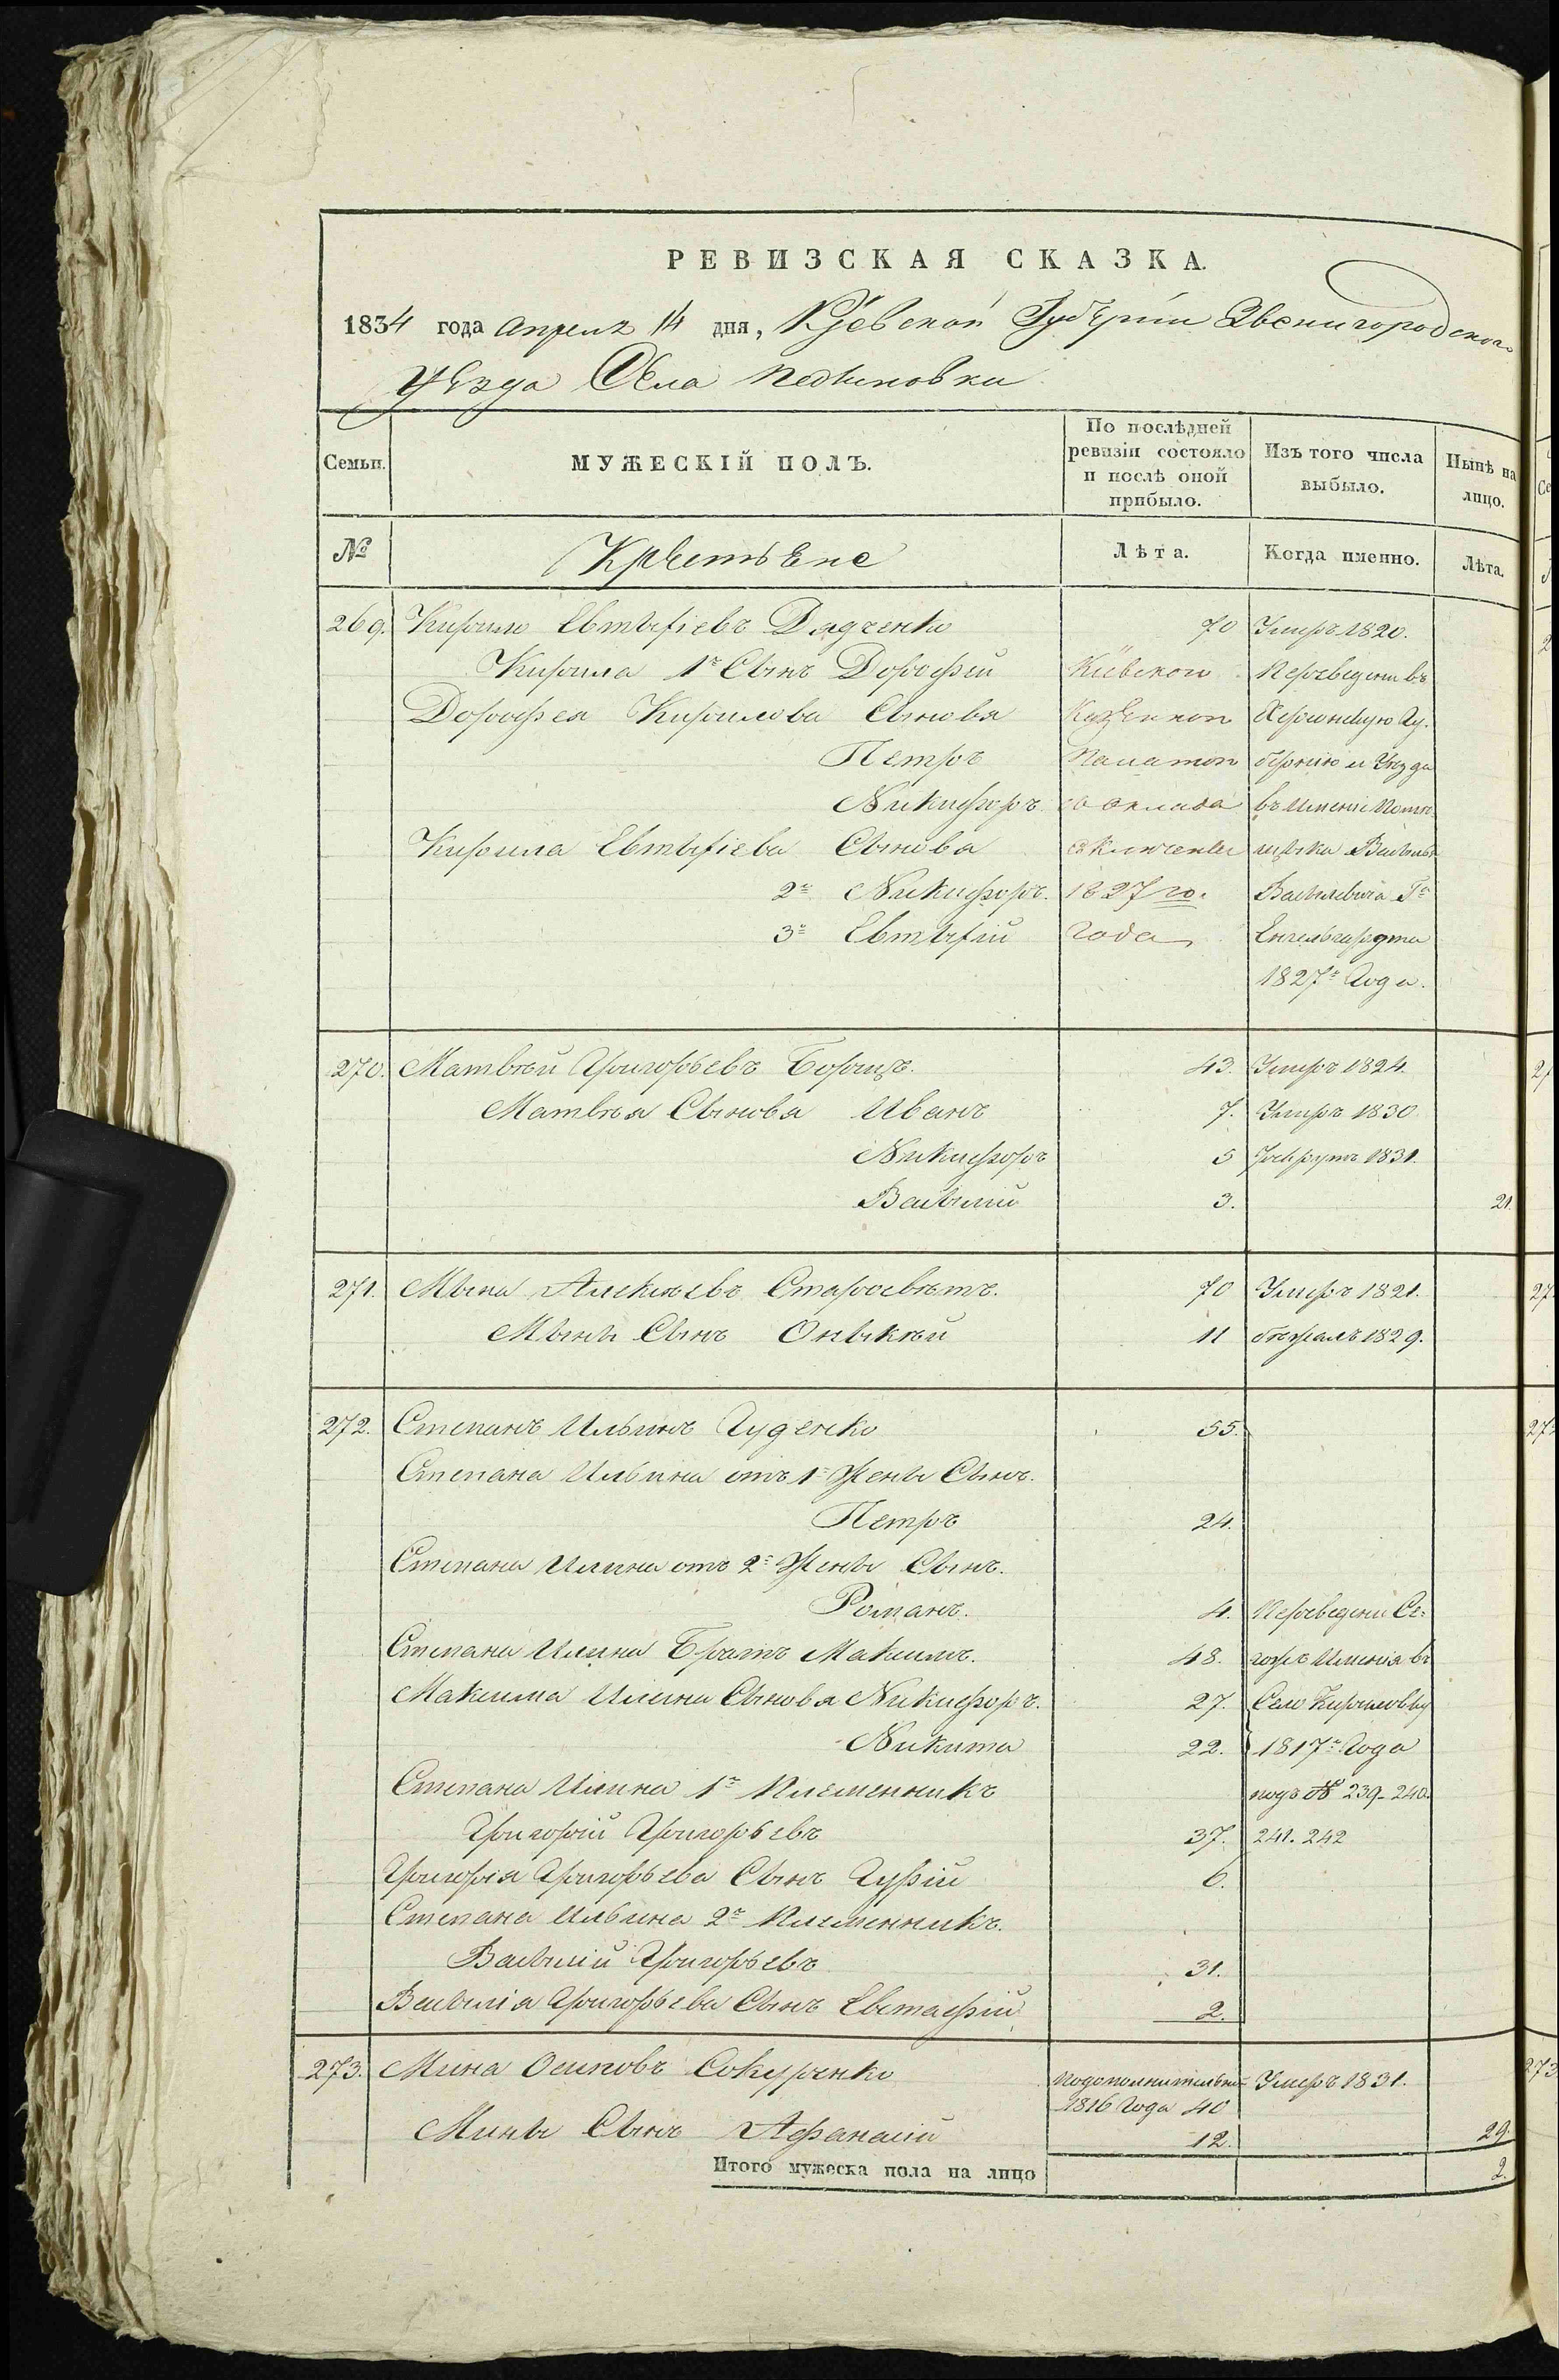 РЕВИЗСКАЯ СКАЗКА.
1834 года апреля 14 дня, Кіевской Губерніи Звенигородскаго
уезда Села Педыновки
Семьи.
МУЖЕСКІЙ ПОЛЪ.
По послѣдней
ревизіи состояло
и послѣ оной
прибыло.
Изъ того числа
выбыло.
Нынѣ на
лицо.
№ Крестьяне Лѣта. Когда именно. Лѣта.
269. Кирило Евтыфіевъ Дядченко 70 Умиръ 1820.
Кирила 1й Сынъ Дорофій Кіевскою Переведени въ
Дорофея Кирилова Сыновя Казенною Херсонскую Гу-
Петръ Палатою бернію и Уезда
Никифоръ съ оклада въ Имѣніе Поме-
Кирила Евтыфіева Сынова изключены щика Василья
2й Никифоръ. 1827 го. Васылевича Гна
3й Евтыфій Года Енгельгардта
1827го Года.
270. Матвѣй Григорьевъ Борщъ. 43. Умиръ 1824.
Матвѣя Сынова Иванъ 7. Умиръ 1830.
Никифоръ 5 рекрутъ 1831.
Васылій 3. 21.
271. Мына Алексѣевъ Старосвѣтъ. 70 Умиръ 1821.
Мыны Сынъ Оныкѣй 11 бѣжалъ 1829.
272. Степанъ Ильинъ Гуденко 55.
Степана Ильина отъ 1й Жены Сынъ.
Петръ 24.
Степана Илина отъ 2й Жены Сынъ.
Романъ. 4. Переведени Се-
Степана Илина Братъ Максимъ. 48. гожъ Именія въ
Максима Илина Сыновя Никифоръ. 27. Село Кириловку
Никита 22. 1817го Года
Степана Илина 1й Племенникъ подъ № 239-240.
Григорій Григорьевъ 37. 241. 242
Григорія Григорьева Сынъ Гурій 6.
Степана Ильина 2й Племенникъ.
Васылій Григорьевъ 31.
Васылія Григорьева Сынъ Евстафій 2.
273. Мина Осиповъ Сокуренко Подополнительной Умеръ 1831.
1816 Года 40
Мины Сынъ Афанасій 12. 29.
Итого мужеска пола на лицо 2.